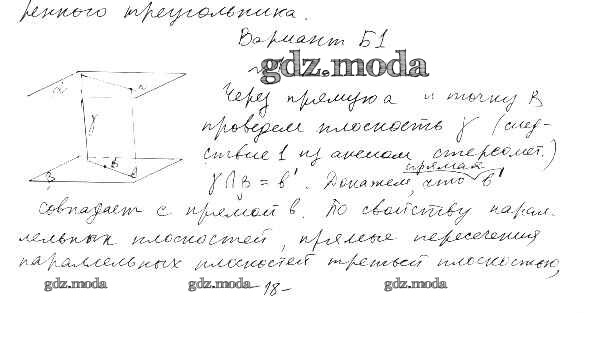 ренного треугольника.
Вариант Б1
gdz.moda
Через прямую a и точку B
проведем плоскость γ (след-
ствие 1 из аксиом стереомет.)
прямая
γ∩β = b'. Докажем, что b'
совпадает с прямой b. По свойству парал-
лельных плоскостей, прямые пересечения
параллельных плоскостей третьей плоскостью,
gdz.moda gdz.moda -18- gdz.moda